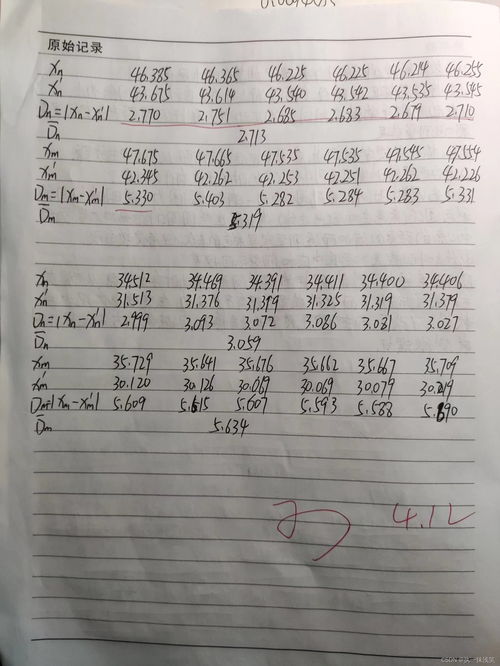 原始记录
Xn 46.385 46.365 46.225 46.225 46.214 46.255
Xn 43.675 43.614 43.540 43.542 43.535 43.545
Dn=|Xn-Xn'| 2.770 2.751 2.685 2.683 2.679 2.710
D̄n 2.713
Xm 47.675 47.665 47.535 47.535 47.545 47.554
Xm' 42.345 42.262 42.253 42.251 42.262 42.226
Dm=|Xm-Xm'| 5.330 5.403 5.282 5.284 5.283 5.331
D̄m 5.319
Xn 34.512 34.469 34.391 34.411 34.400 34.406
Xn' 31.513 31.376 31.319 31.325 31.319 31.379
Dn=|Xn-Xn'| 2.999 3.093 3.072 3.086 3.081 3.027
D̄n 3.059
Xm 35.729 35.641 35.676 35.662 35.667 35.709
Xm' 30.120 30.126 30.069 30.069 30.079 30.019
Dm=|Xm-Xm'| 5.609 5.615 5.607 5.593 5.588 5.690
D̄m 5.634
4.12